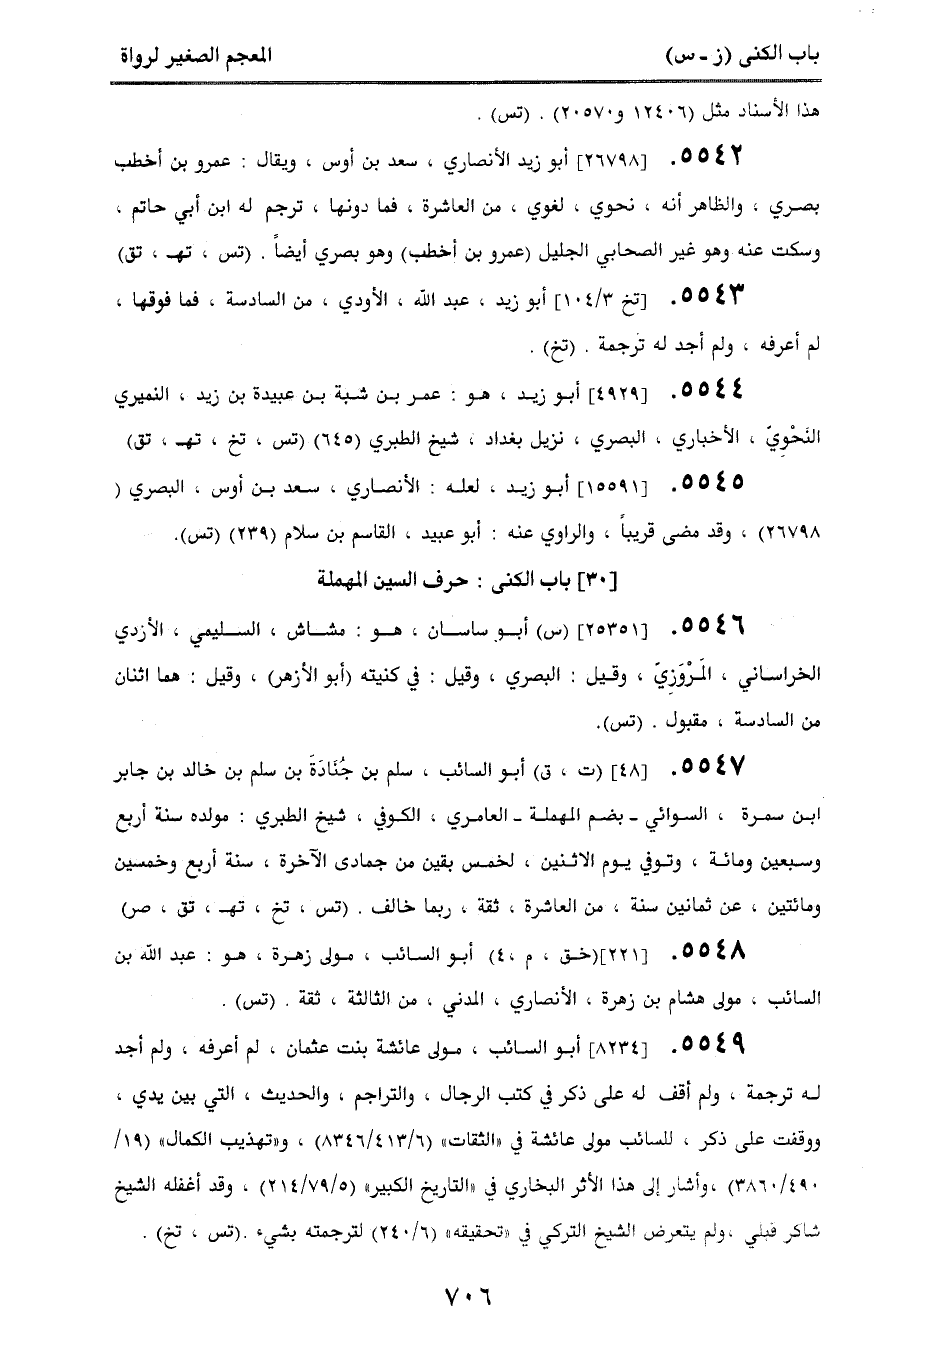 باب الكنى (ز ـ س)
المعجم الصغير لرواة
هذا الأسناد مثل (١٢٤٠٦ و٢٠٥٧٠) . (تس) .
٥٥٤٢. [٢٦٧٩٨] أبو زيد الأنصاري ، سعد بن أوس ، ويقال : عمرو بن أخطب
بصري ، والظاهر أنه ، نحوي ، لغوي ، من العاشرة ، فما دونها ، ترجم له ابن أبي حاتم ،
وسكت عنه وهو غير الصحابي الجليل (عمرو بن أخطب) وهو بصري أيضاً . (تس ، تهـ ، تق)
٥٥٤٣. [تخ ١٠٤/٣] أبو زيد ، عبد الله ، الأودي ، من السادسة ، فما فوقها ،
لم أعرفه ، ولم أجد له ترجمة . (تخ) .
٥٥٤٤. [٤٩٢٩] أبو زيد ، هو : عمر بن شبة بن عبيدة بن زيد ، النميري
النَحْوِيّ ، الأخباري ، البصري ، نزيل بغداد ، شيخ الطبري (٦٤٥) (تس ، تخ ، تهـ ، تق)
٥٥٤٥. [١٥٥٩١] أبو زيد ، لعله : الأنصاري ، سعد بن أوس ، البصري (
٢٦٧٩٨) ، وقد مضى قريباً ، والراوي عنه : أبو عبيد ، القاسم بن سلام (٢٣٩) (تس).
[٣٠] باب الكنى : حرف السين المهملة
٥٥٤٦. [٢٥٣٥١] (س) أبو ساسان ، هو : مشاش ، السليمي ، الأزدي
الخراساني ، المَرْوَزِيّ ، وقيل : البصري ، وقيل : في كنيته (أبو الأزهر) ، وقيل : هما اثنان
من السادسة ، مقبول . (تس).
٥٥٤٧. [٤٨] (ت ، ق) أبو السائب ، سلم بن جُنَادَةَ بن سلم بن خالد بن جابر
ابن سمرة ، السوائي ـ بضم المهملة ـ العامري ، الكوفي ، شيخ الطبري : مولده سنة أربع
وسبعين ومائة ، وتوفي يوم الاثنين ، لخمس بقين من جمادى الآخرة ، سنة أربع وخمسين
ومائتين ، عن ثمانين سنة ، من العاشرة ، ثقة ، ربما خالف . (تس ، تخ ، تهـ ، تق ، صر)
٥٥٤٨. [٢٢١](خـق ، م ،٤) أبو السائب ، مولى زهرة ، هو : عبد الله بن
السائب ، مولى هشام بن زهرة ، الأنصاري ، المدني ، من الثالثة ، ثقة . (تس) .
٥٥٤٩. [٨٢٣٤] أبو السائب ، مولى عائشة بنت عثمان ، لم أعرفه ، ولم أجد
له ترجمة ، ولم أقف له على ذكر في كتب الرجال ، والتراجم ، والحديث ، التي بين يدي ،
ووقفت على ذكر ، للسائب مولى عائشة في «الثقات» (٨٣٤٦/٤١٣/٦) ، و«تهذيب الكمال» (١٩/
٣٨٦٠/٤٩٠) ،وأشار إلى هذا الأثر البخاري في «التاريخ الكبير» (٢١٤/٧٩/٥) ، وقد أغفله الشيخ
شاكر قبلي ،ولم يتعرض الشيخ التركي في «تحقيقه» (٢٤٠/٦) لترجمته بشيء .(تس ، تخ) .
٧٠٦